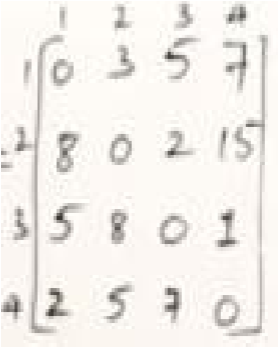 1 2 3 4
1 0 3 5 7
=2 8 0 2 15
3 5 8 0 1
4 2 5 7 0